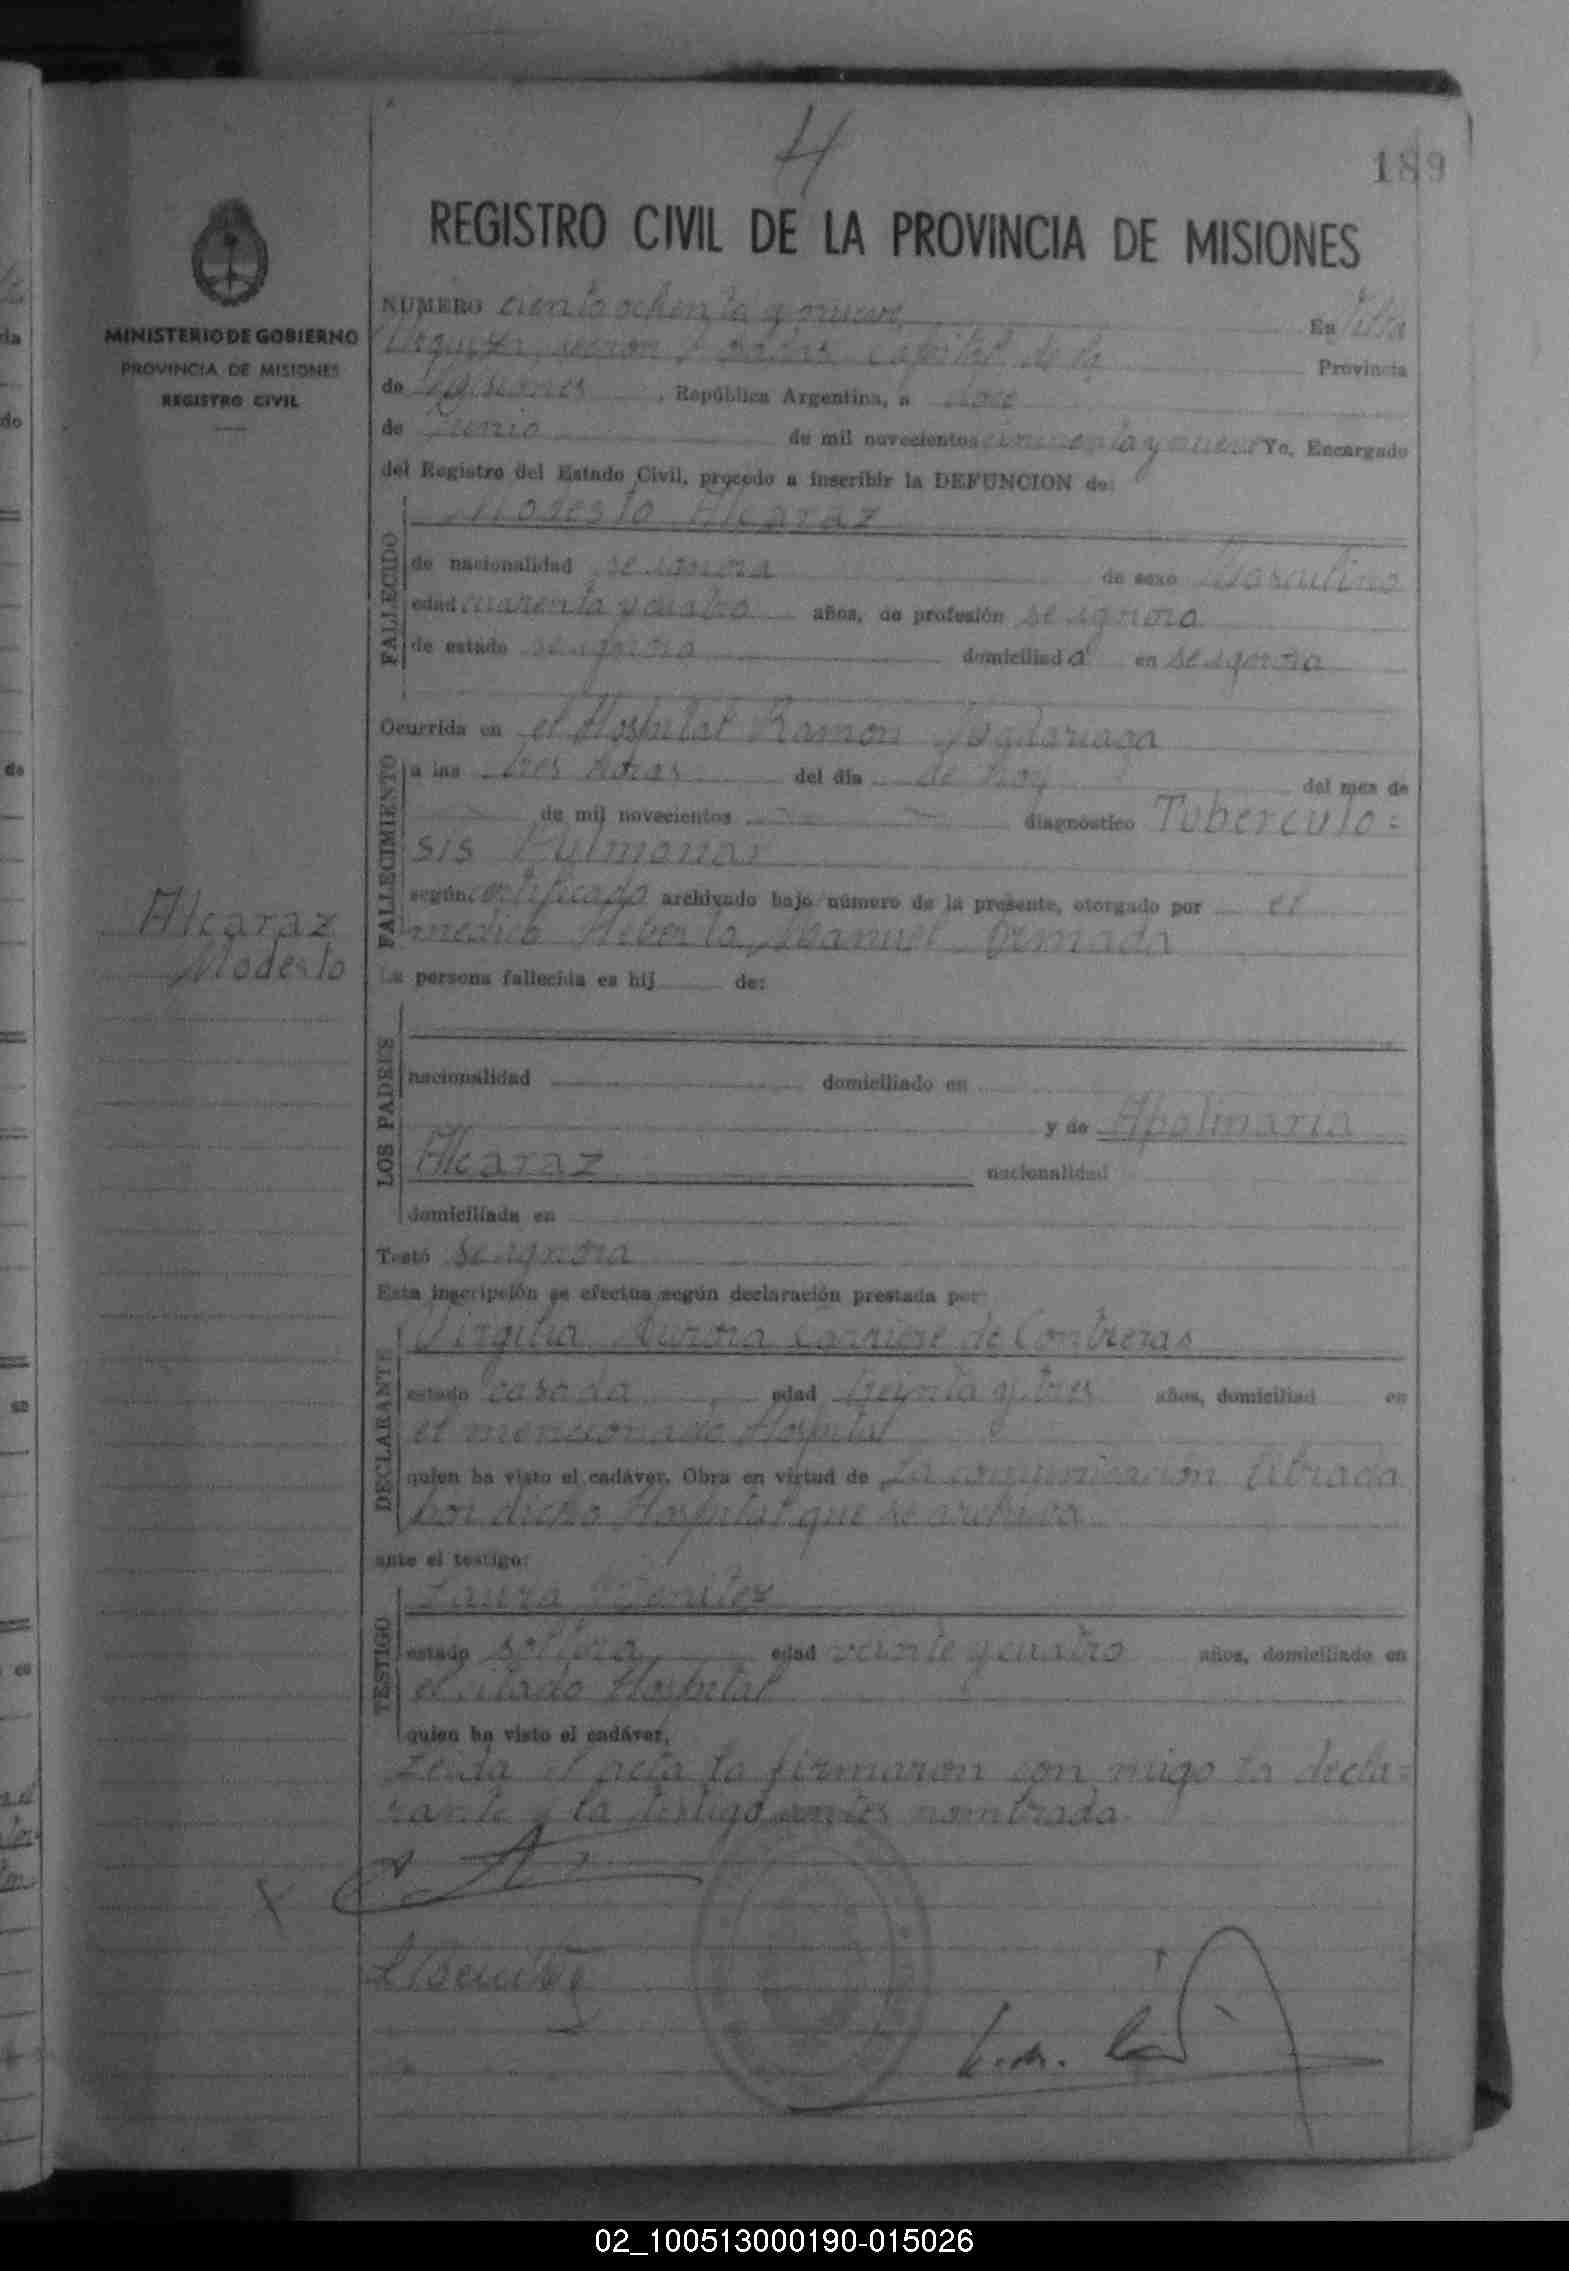 4
189
REGISTRO CIVIL DE LA PROVINCIA DE MISIONES
MINISTERIO DE GOBIERNO
PROVINCIA DE MISIONES
REGISTRO CIVIL
NUMERO ciento ochenta y nueve En Villa
Urquiza, capital de la Provincia
de Misiones, República Argentina, a doce
de Junio de mil novecientos cincuenta y nueve Yo, Encargado
del Registro del Estado Civil, procedo a inscribir la DEFUNCION de:
FALLECIDO
Modesto Alcaraz
de nacionalidad se ignora de sexo Masculino
edad cuarenta y cuatro años, de profesión se ignora
de estado se ignora domiciliad a en se ignora
Ocurrida en el Hospital Ramón Madariaga
FALLECIMIENTO
a las tres horas del día de hoy del mes de
de mil novecientos diagnóstico Tuberculo=
sis Pulmonar
según certificado archivado bajo número de la presente, otorgado por el
médico Manuel
Alcaraz
Modesto
La persona fallecida es hij de:
LOS PADRES
nacionalidad domiciliado en
y de Apolinaria
Alcaraz nacionalidad
domiciliada en
Testó se ignora
Esta inscripción se efectua según declaración prestada por:
DECLARANTE
Virgilia Aurora de Contreras
estado casada edad treinta y tres años, domiciliad en
el mencionado Hospital
quien ha visto el cadáver. Obra en virtud de la comunicación librada
por dicho Hospital que se archiva
ante el testigo:
TESTIGO
Laura Benitez
estado soltera edad veinte y cuatro años, domiciliado en
el citado Hospital
quien ha visto el cadáver,
Leida el acta la firmaron con migo la decla=
rante y la testigo antes nombrada.
LBenitez
02_100513000190-015026